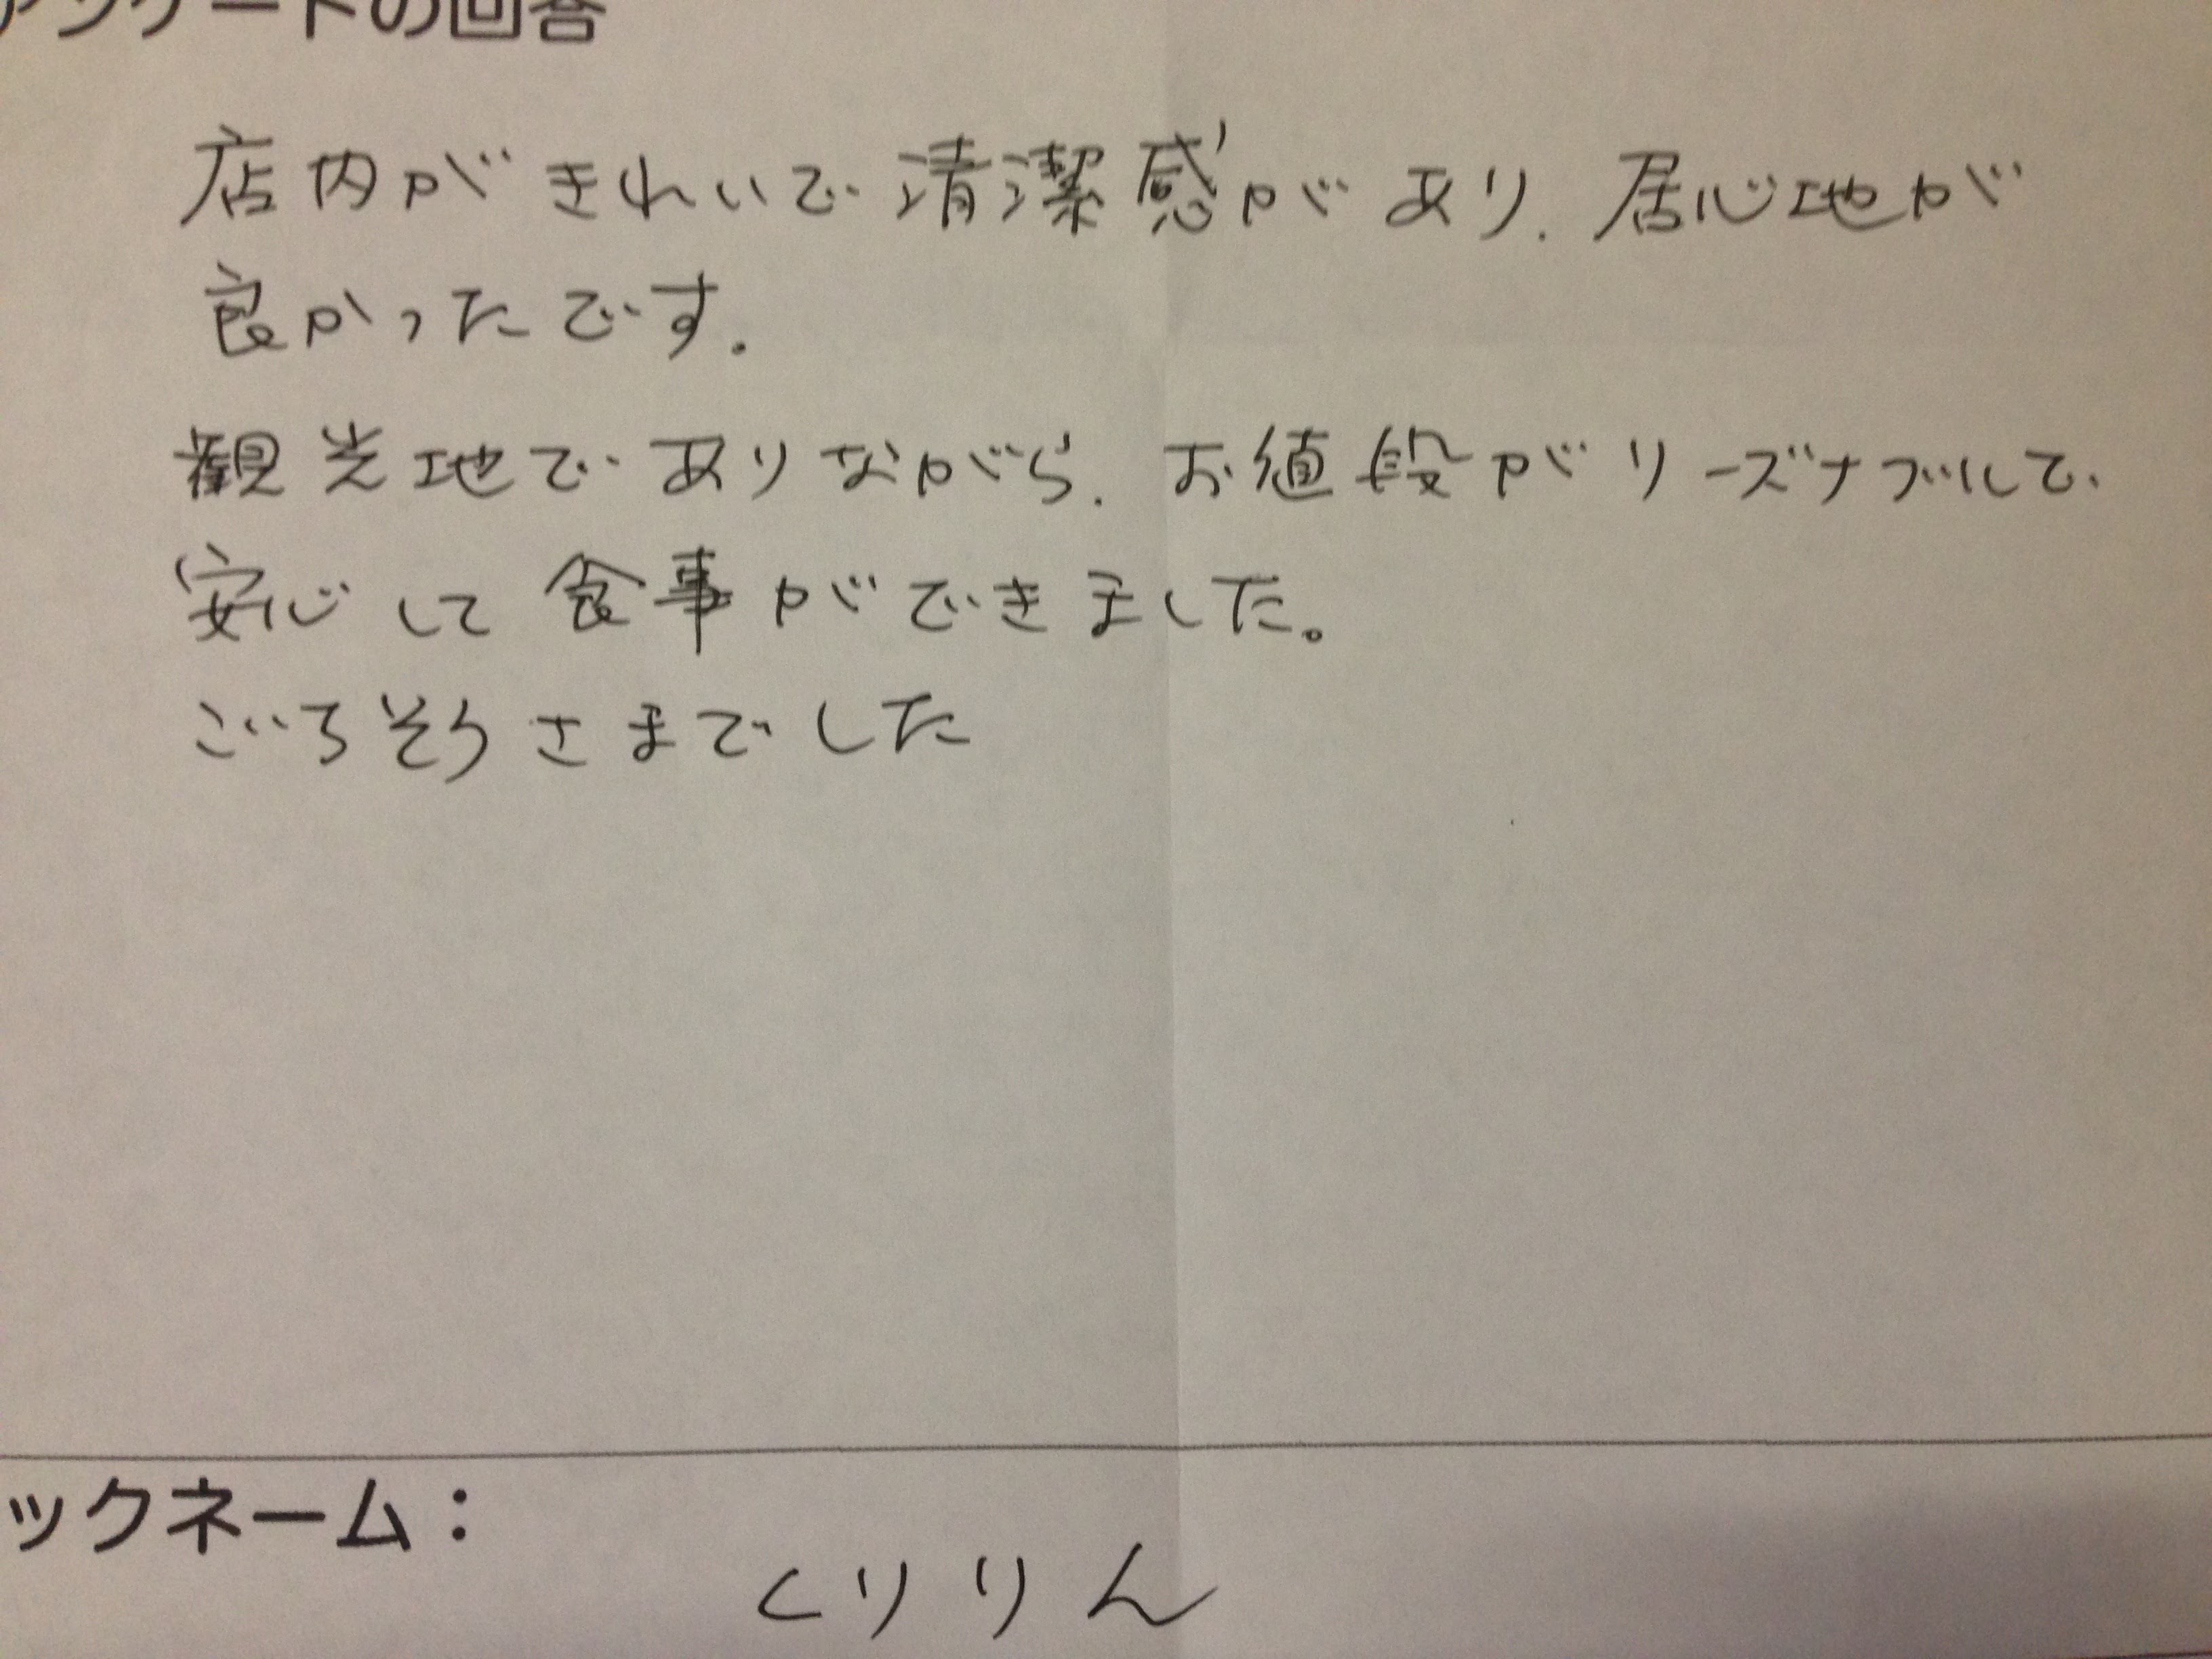 アンケートの回答
店内がきれいで清潔感があり、居心地が
良かったです。
観光地でありながら、お値段がリーズナブルで、
安心して食事ができました。
ごちそうさまでした
ックネーム：
くりりん